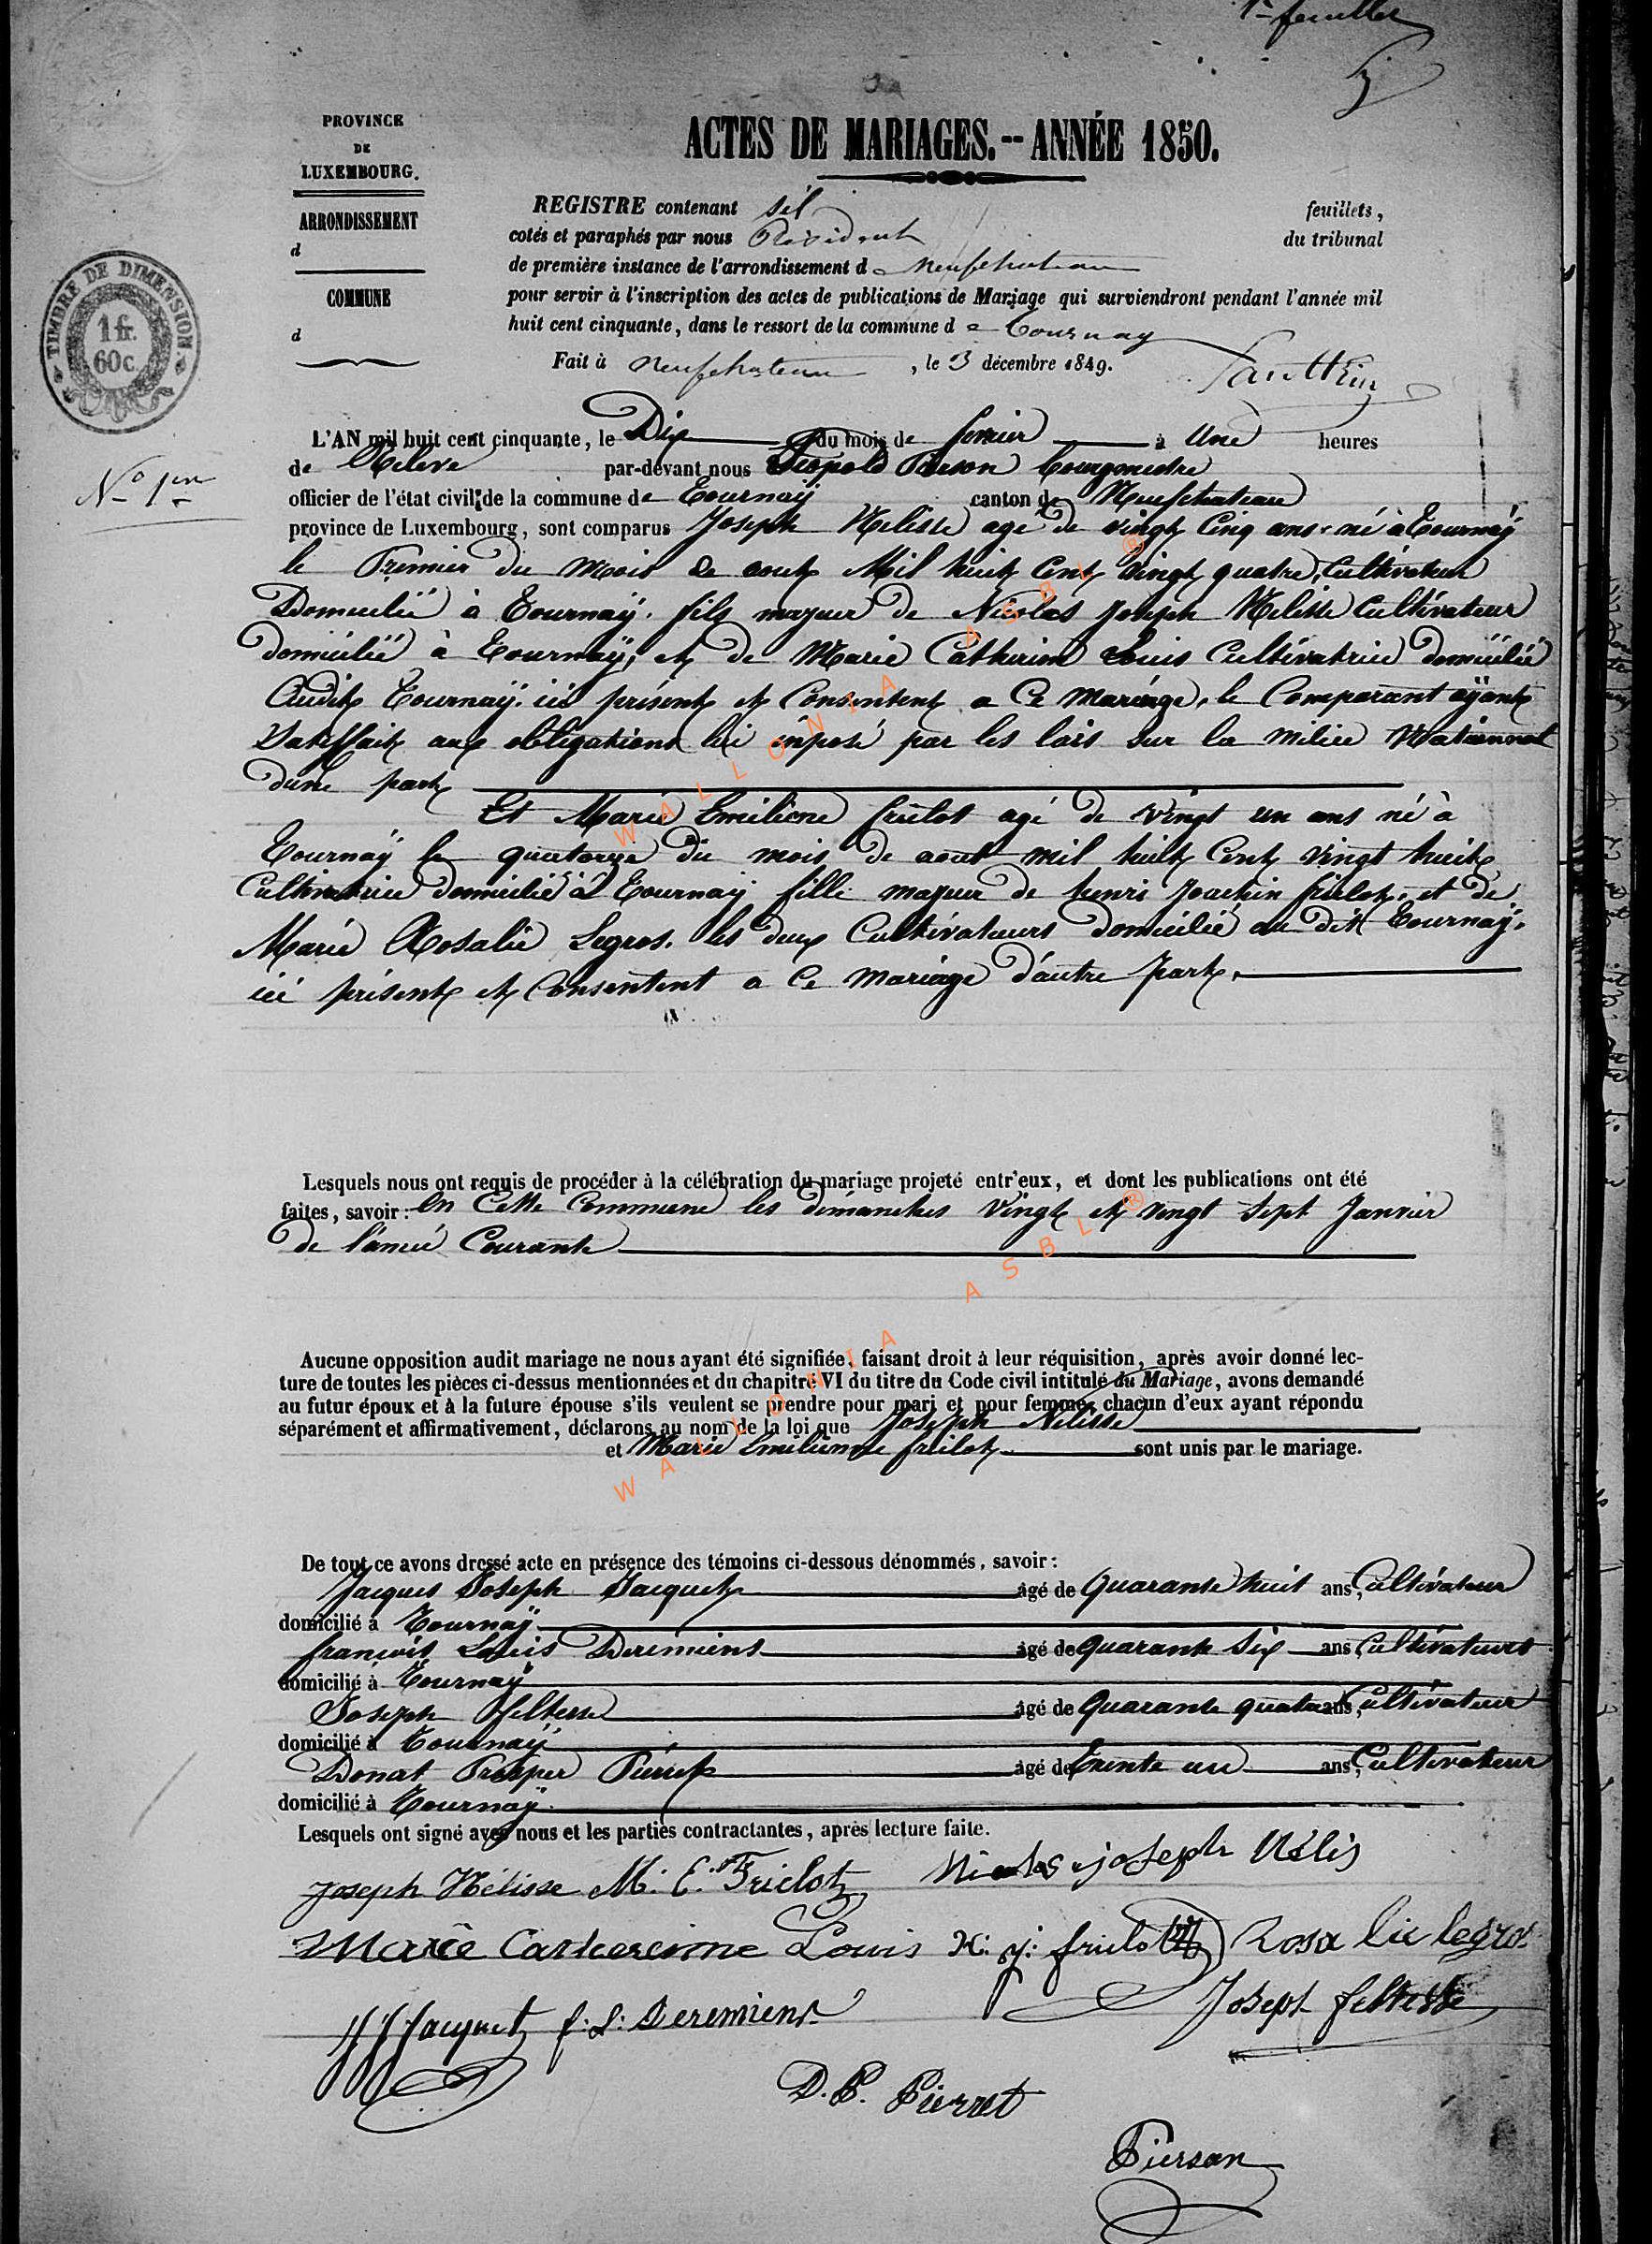 1er feuillet
PROVINCE
DE
LUXEMBOURG.
ARRONDISSEMENT
d
COMMUNE
d
TIMBRE DE DIMENSION.
1 fr.
60c.
ACTES DE MARIAGES.-- ANNÉE 1850.
REGISTRE contenant feuillets,
cotés et paraphés par nous Président du tribunal
de première instance de l'arrondissement de Neufchateau
pour servir à l'inscription des actes de publications de Mariage qui surviendront pendant l'année mil
huit cent cinquante, dans le ressort de la commune de Tournay
Fait à Neufchateau, le 3 décembre 1849.
No 1er
L'AN mil huit cent cinquante, le Dix du mois de fevrier à Une heures
de Releve par-devant nous Léopold Pierson bourgmestre
officier de l'état civil de la commune de Tournaÿ canton de Neufchateau
province de Luxembourg, sont comparus Joseph Nélisse agé de vingt Cinq ans né à Tournaÿ
le Premier du mois de aout Mil huit Cent vingt quatre, Cultivateur
Domicilié à Tournaÿ. fils majeur de Nicolas Joseph Nelisse Cultivateur
domicilié à Tournaÿ, et de Marie Catherine Louis Cultivatrice domiciliée
Audit Tournaÿ. ici présent et Consentent a Ce mariage, le Comparant ayant
Satisffait aux obligations lui imposé par les lois sur la milice Nationnal
dune part
Et Marie Emilienne frielot agé de vingt un ans né à
Tournaÿ le quatorze du mois de aout mil huit Cent vingt huit
Cultivatrice domicilié à Tournaÿ fille majeur de henri Joachin frielot, et de
Marie Rosalie Legros. les deux Cultivateurs domicilié au dit Tournaÿ.
ici présent et Consentent a Ce mariage d'autre part.
Lesquels nous ont requis de procéder à la célébration du mariage projeté entr'eux, et dont les publications ont été
faites, savoir: en Cette Commune les dimanches vingt et vingt sept Janvier
de l'année Courante
Aucune opposition audit mariage ne nous ayant été signifiée, faisant droit à leur réquisition, après avoir donné lec-
ture de toutes les pièces ci-dessus mentionnées et du chapitre VI du titre du Code civil intitulé du Mariage, avons demandé
au futur époux et à la future épouse s'ils veulent se prendre pour mari et pour femme, chacun d'eux ayant répondu
séparément et affirmativement, déclarons au nom de la loi que Joseph Nelisse
et Marie Emilienne frielot sont unis par le mariage.
De tout ce avons dressé acte en présence des témoins ci-dessous dénommés, savoir:
Jacques Joseph Jacquet âgé de Quarante huit ans, Cultivateur
domicilié à Tournaÿ
françois Louis Deremiens âgé de quarante Six ans Cultivateurs
domicilié à Tournaÿ
Joseph feltesse âgé de Quarante quatre ans, Cultivateur
domicilié à Tournaÿ
Donat Prosper Pierret âgé de trente un ans, Cultivateur
domicilié à Tournaÿ.
Lesquels ont signé avec nous et les parties contractantes, après lecture faite.
Joseph Nélisse M. E. Frielot Nicolas joseph Nélis
Marie Catherine Louis H: j: frielot Rosalie legros
JJ Jacquet f: L: Deremiens Joseph feltesse
D. P. Pierret
Pierson
WALLONIA ASBL ®
WALLONIA ASBL ®